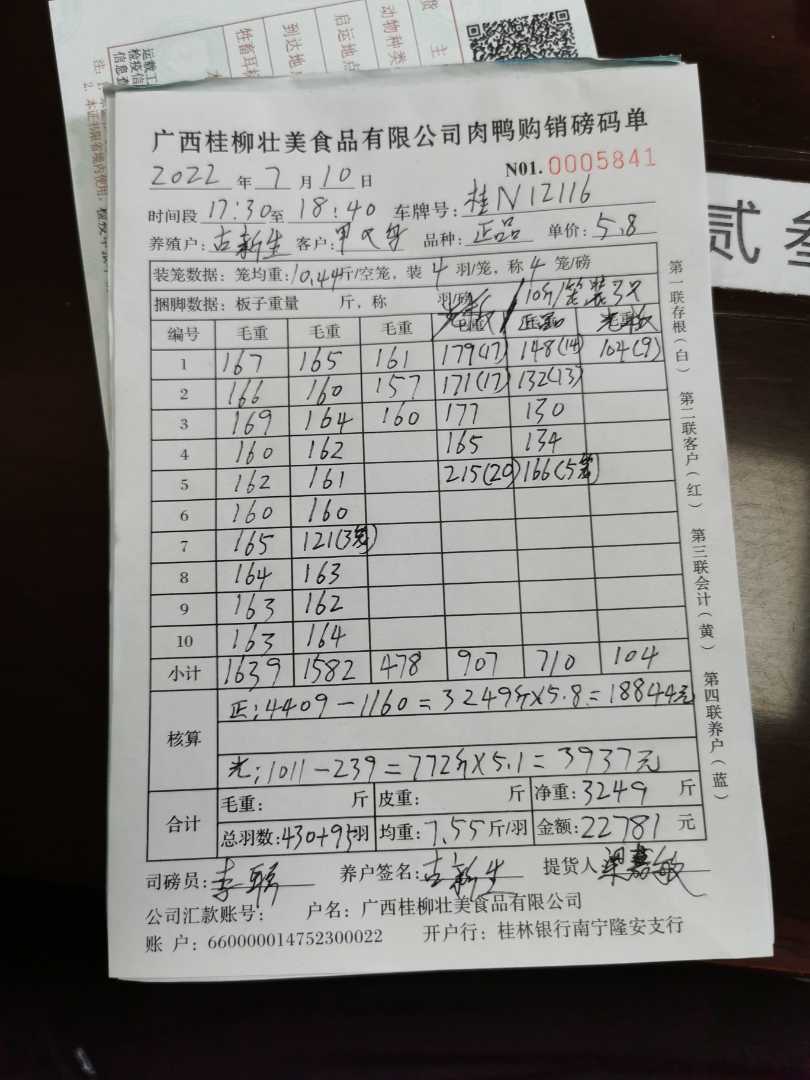 货 主
动物种类
启运地点
到达地
牲畜耳标
运载工
检疫信
信息查
2. 本证书限省境内使用,
广西桂柳壮美食品有限公司肉鸭购销磅码单
2022 年 7 月 10 日 N01. 0005841
时间段 17:30 至 18:40 车牌号: 桂N12116
养殖户: 古新生 客户: 品种: 正品 单价: 5.8
装笼数据: 笼均重: 10.44 斤/空笼, 装 4 羽/笼, 称 4 笼/磅
捆脚数据: 板子重量 斤, 称 羽/磅 10斤/笼 装3只
编号 毛重 毛重 毛重 毛重 毛重
1 167 165 161 179(17) 148(14) 104(9)
2 166 160 157 171(17) 132(13)
3 169 164 160 177 130
4 160 162 165 134
5 162 161 215(20) 166(5笼)
6 160 160
7 165 121(3笼)
8 164 163
9 163 162
10 163 164
小计 1639 1582 478 907 710 104
核算
正: 4409-1160=3249斤×5.8=18844元
光: 1011-239=772斤×5.1=3937元
合计
毛重: 斤 皮重: 斤 净重: 3249 斤
总羽数: 430+95 羽 均重: 7.55 斤/羽 金额: 22781 元
司磅员: 李 养户签名: 古新生 提货人 梁嘉敏
公司汇款账号: 户名: 广西桂柳壮美食品有限公司
账 户: 660000014752300022 开户行: 桂林银行南宁隆安支行
第一联存根(白) 第二联客户(红) 第三联会计(黄) 第四联养户(蓝)
贰 叁